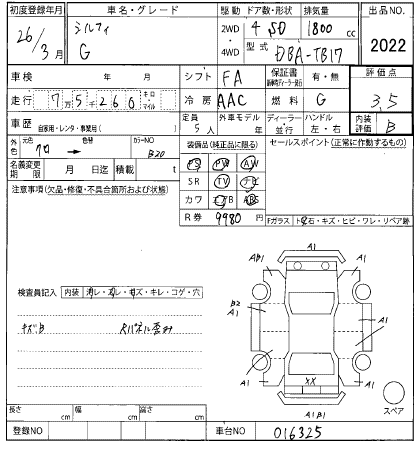 初度登録年月 車名・グレード 駆動 ドア数・形状 排気量 出品NO.
26/3月 シルフィ G 2WD・4WD 4 SD 1800 cc 2022
型式 DBA-TB17
車検 年 月 シフト FA 保証書 有・無 評価点
走行 7万5千260 キロ・マイル 冷房 AAC 燃料 G 3,5
車歴 自家用・レンタ・事業用( ) 定員 5人 外車モデル 年 ディーラー・並行 ハンドル 左・右 内装評価 B
外色 元色 クロ → 色替 カラーNO B20 装備品(純正品に限る) セールスポイント(正常に作動するもの)
名義変更期限 月 日迄 積載 t PS PW AW
注意事項(欠品・修復・不具合箇所および状態) SR TV ナビ
カワ エアB ABS
R券 9980円 Fガラス トビ石・キズ・ヒビ・ワレ・リペア跡
A1
AB1 A1
検査員記入 内装 汚レ・スレ・キズ・キレ・コゲ・穴
B2
A1 A1
キズB
A1 A1
XX
A1B1
スペア
長さ cm 幅 cm 高さ cm
登録NO 車台NO 016325